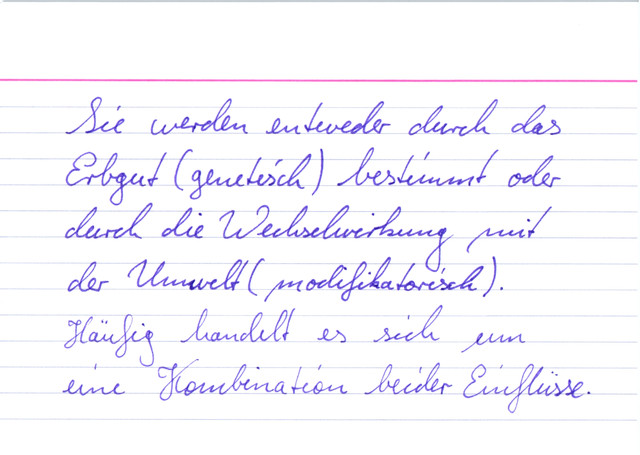 Sie werden entweder durch das
Erbgut (genetisch) bestimmt oder
durch die Wechselwirkung mit
der Umwelt (modifikatorisch).
Häufig handelt es sich um
eine Kombination beider Einflüsse.